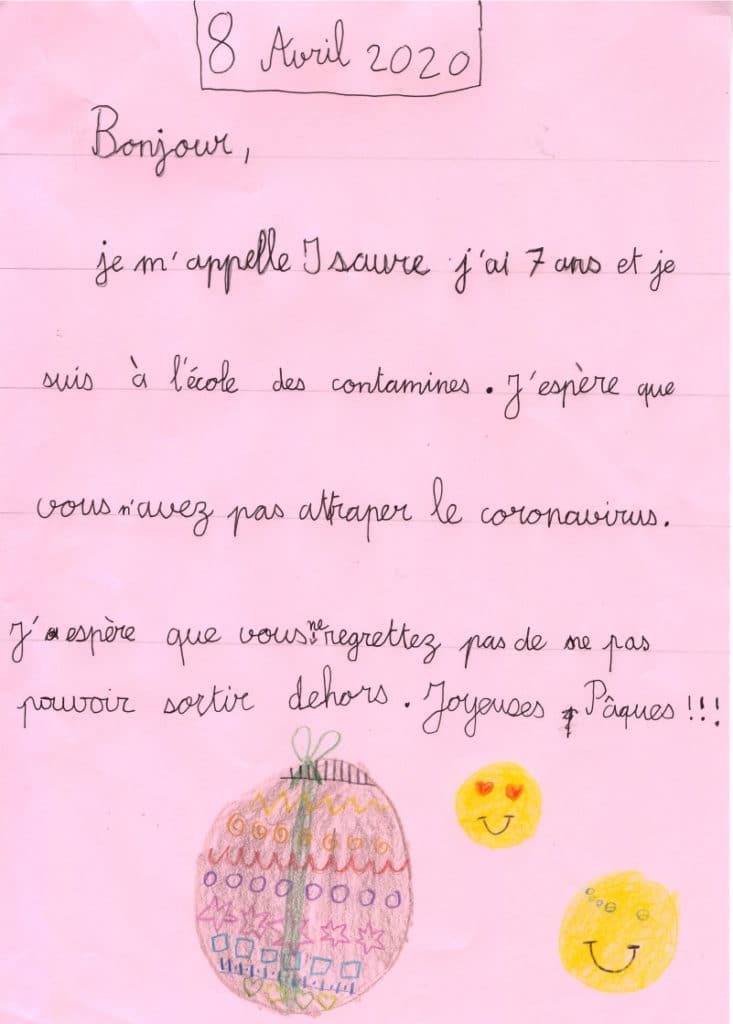 8 Avril 2020
Bonjour,
je m'appelle Isaure j'ai 7 ans et je
suis à l'école des contamines. J'espère que
vous n'avez pas attraper le coronavirus.
J'espère que vous ne regrettez pas de ne pas
pouvoir sortir dehors. Joyeuses Pâques !!!